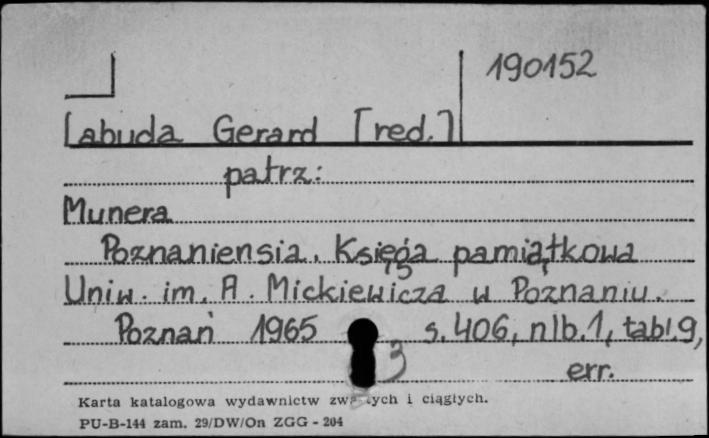 190152
Labuda Gerard [red.]
patrz:
Munera
Poznaniensia. Księga pamiątkowa
Uniw. im. A. Mickiewicza w Poznaniu.
Poznań 1965 s. 406, nlb. 1, tabl. 9,
3 err.
Karta katalogowa wydawnictw zwartych i ciągłych.
PU-B-144 zam. 29/DW/On ZGG - 204